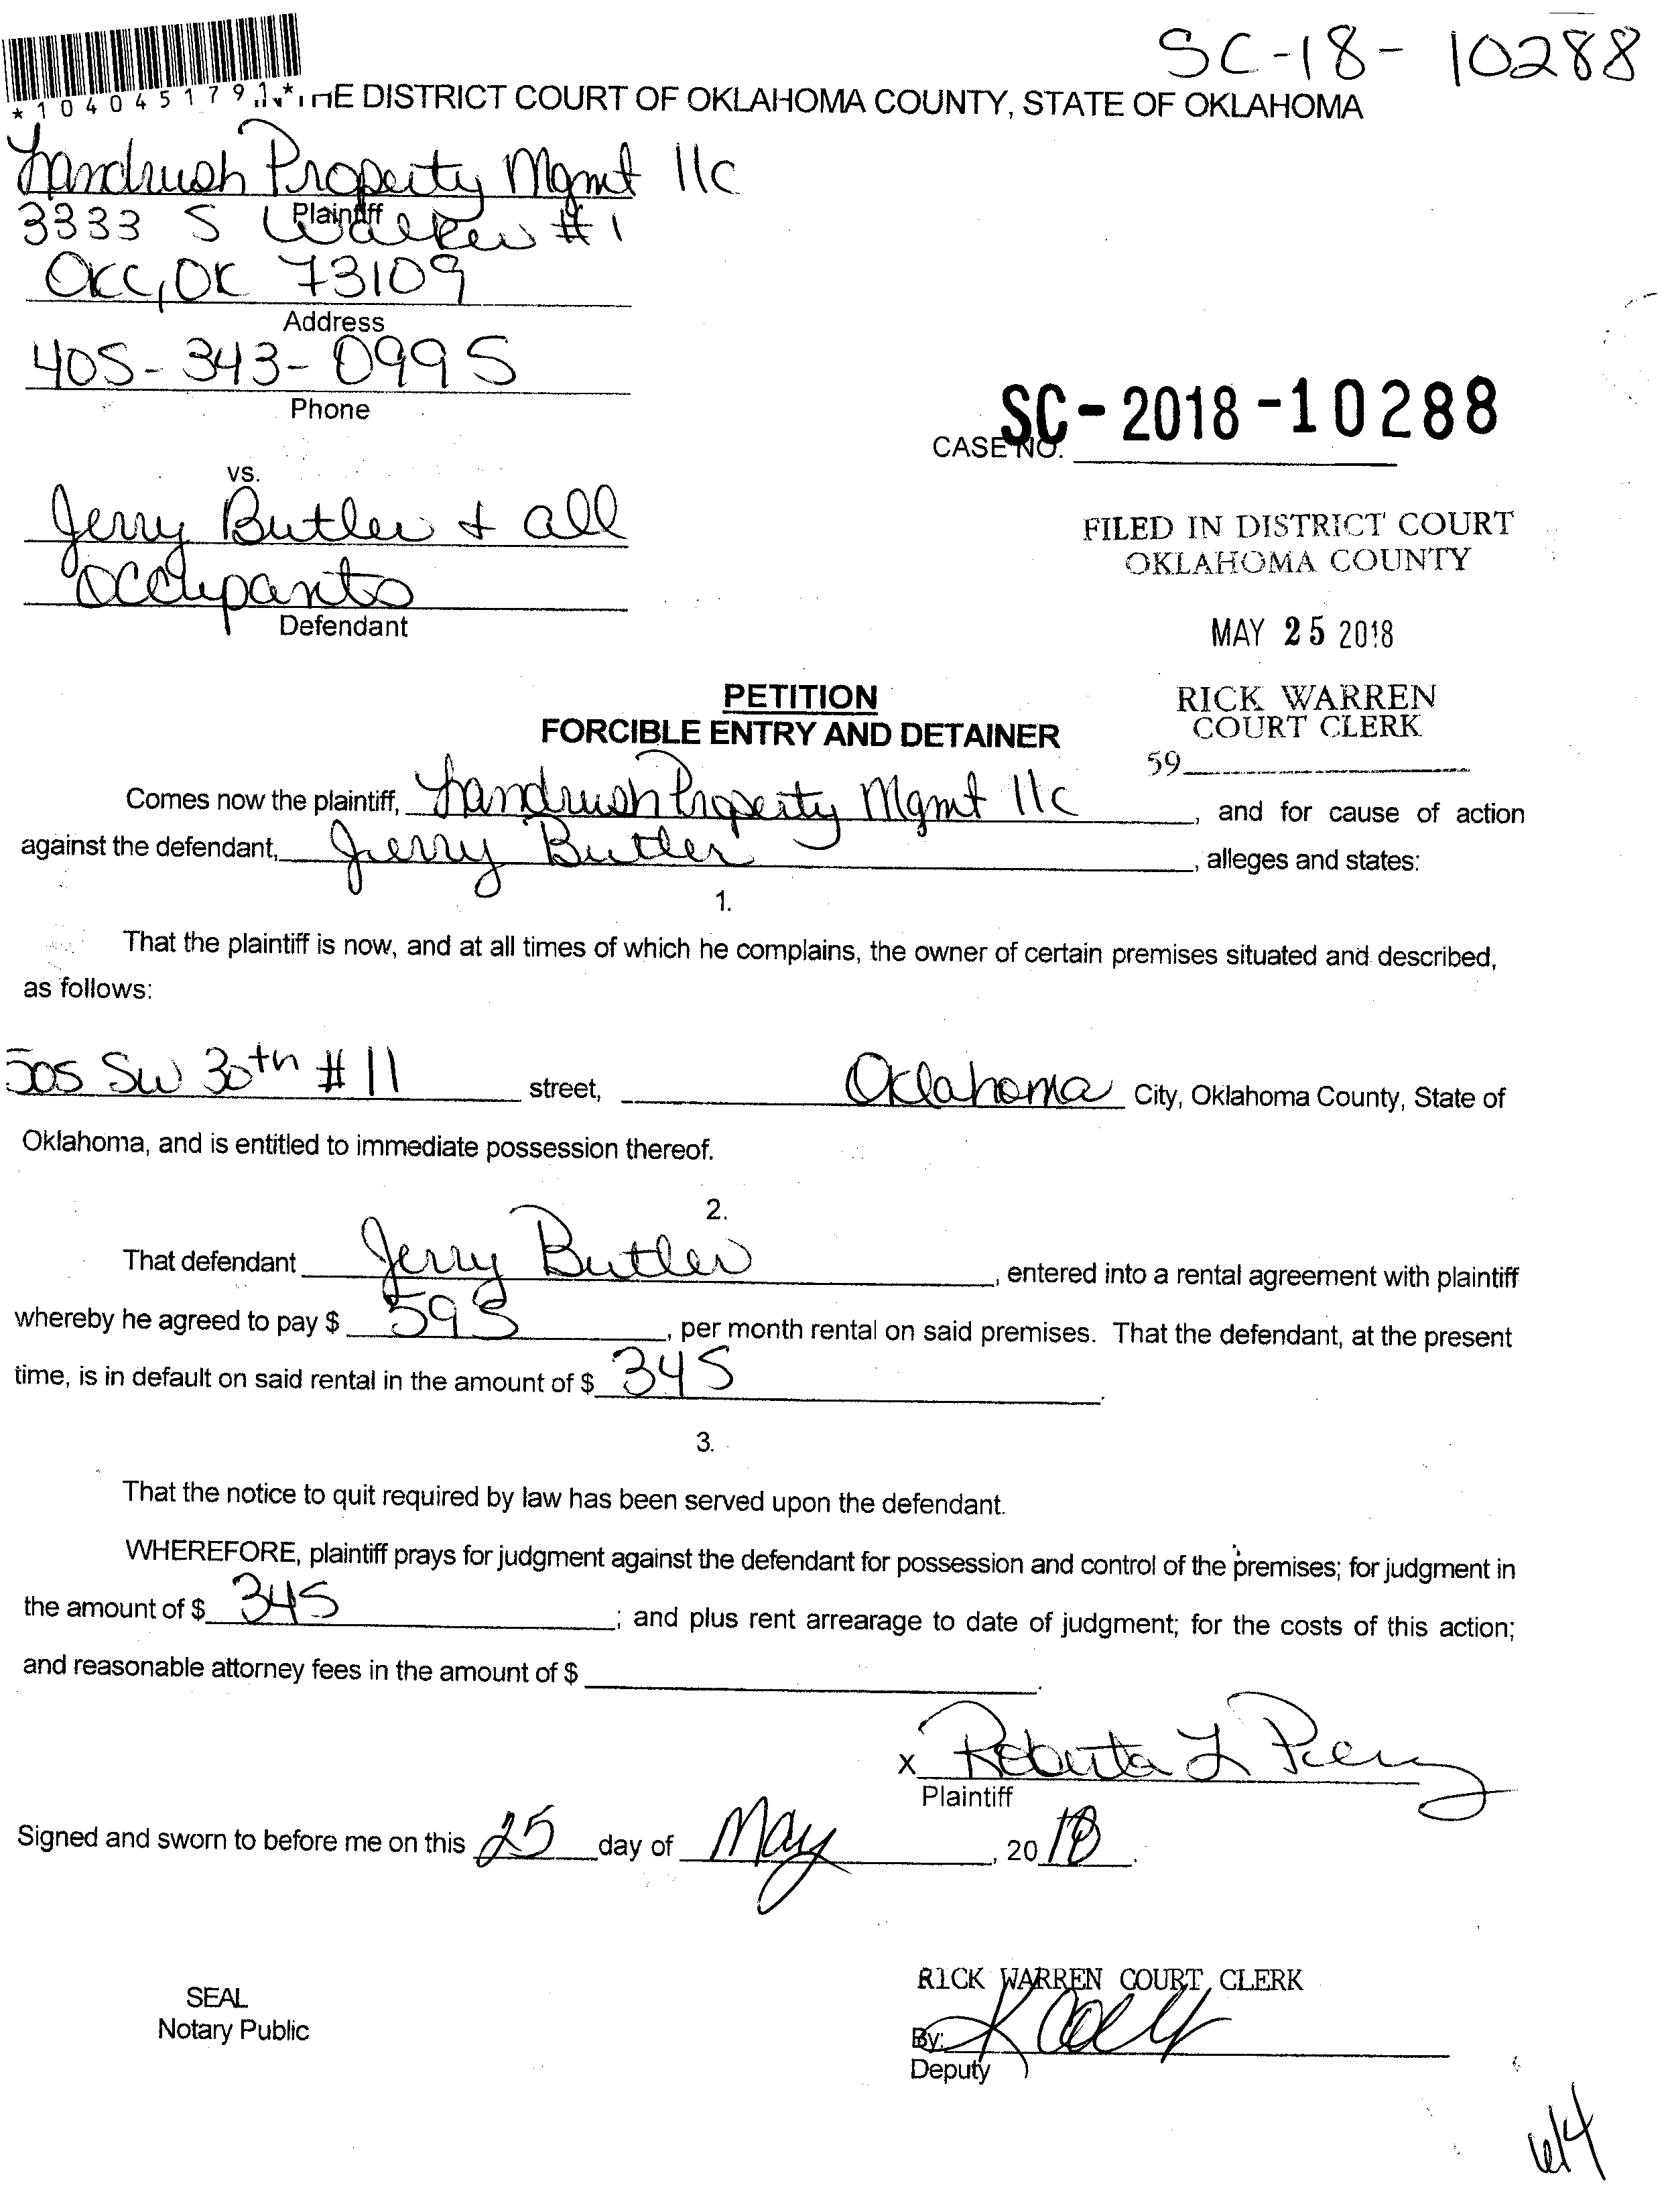 SC-18-10288
*1040451791*
THE DISTRICT COURT OF OKLAHOMA COUNTY, STATE OF OKLAHOMA
Landrush Property Mgmt llc
Plaintiff
3333 S Walker #1
OKC, OK 73109
Address
405-343-0995
Phone
SC-2018-10288
CASE NO.
vs.
Jerry Butler + all
Occupants
Defendant
FILED IN DISTRICT COURT
OKLAHOMA COUNTY
MAY 25 2018
RICK WARREN
COURT CLERK
59
PETITION
FORCIBLE ENTRY AND DETAINER
Comes now the plaintiff, Landrush Property Mgmt llc, and for cause of action
against the defendant, Jerry Butler, alleges and states:
1.
That the plaintiff is now, and at all times of which he complains, the owner of certain premises situated and described,
as follows:
505 SW 30th #11 street, Oklahoma City, Oklahoma County, State of
Oklahoma, and is entitled to immediate possession thereof.
2.
That defendant Jerry Butler, entered into a rental agreement with plaintiff
whereby he agreed to pay $ 595, per month rental on said premises. That the defendant, at the present
time, is in default on said rental in the amount of $ 345.
3.
That the notice to quit required by law has been served upon the defendant.
WHEREFORE, plaintiff prays for judgment against the defendant for possession and control of the premises; for judgment in
the amount of $ 345; and plus rent arrearage to date of judgment; for the costs of this action;
and reasonable attorney fees in the amount of $ .
x Roberta L
Plaintiff
Signed and sworn to before me on this 25 day of May, 2018.
SEAL
Notary Public
RICK WARREN COURT CLERK
By:
Deputy
6/4